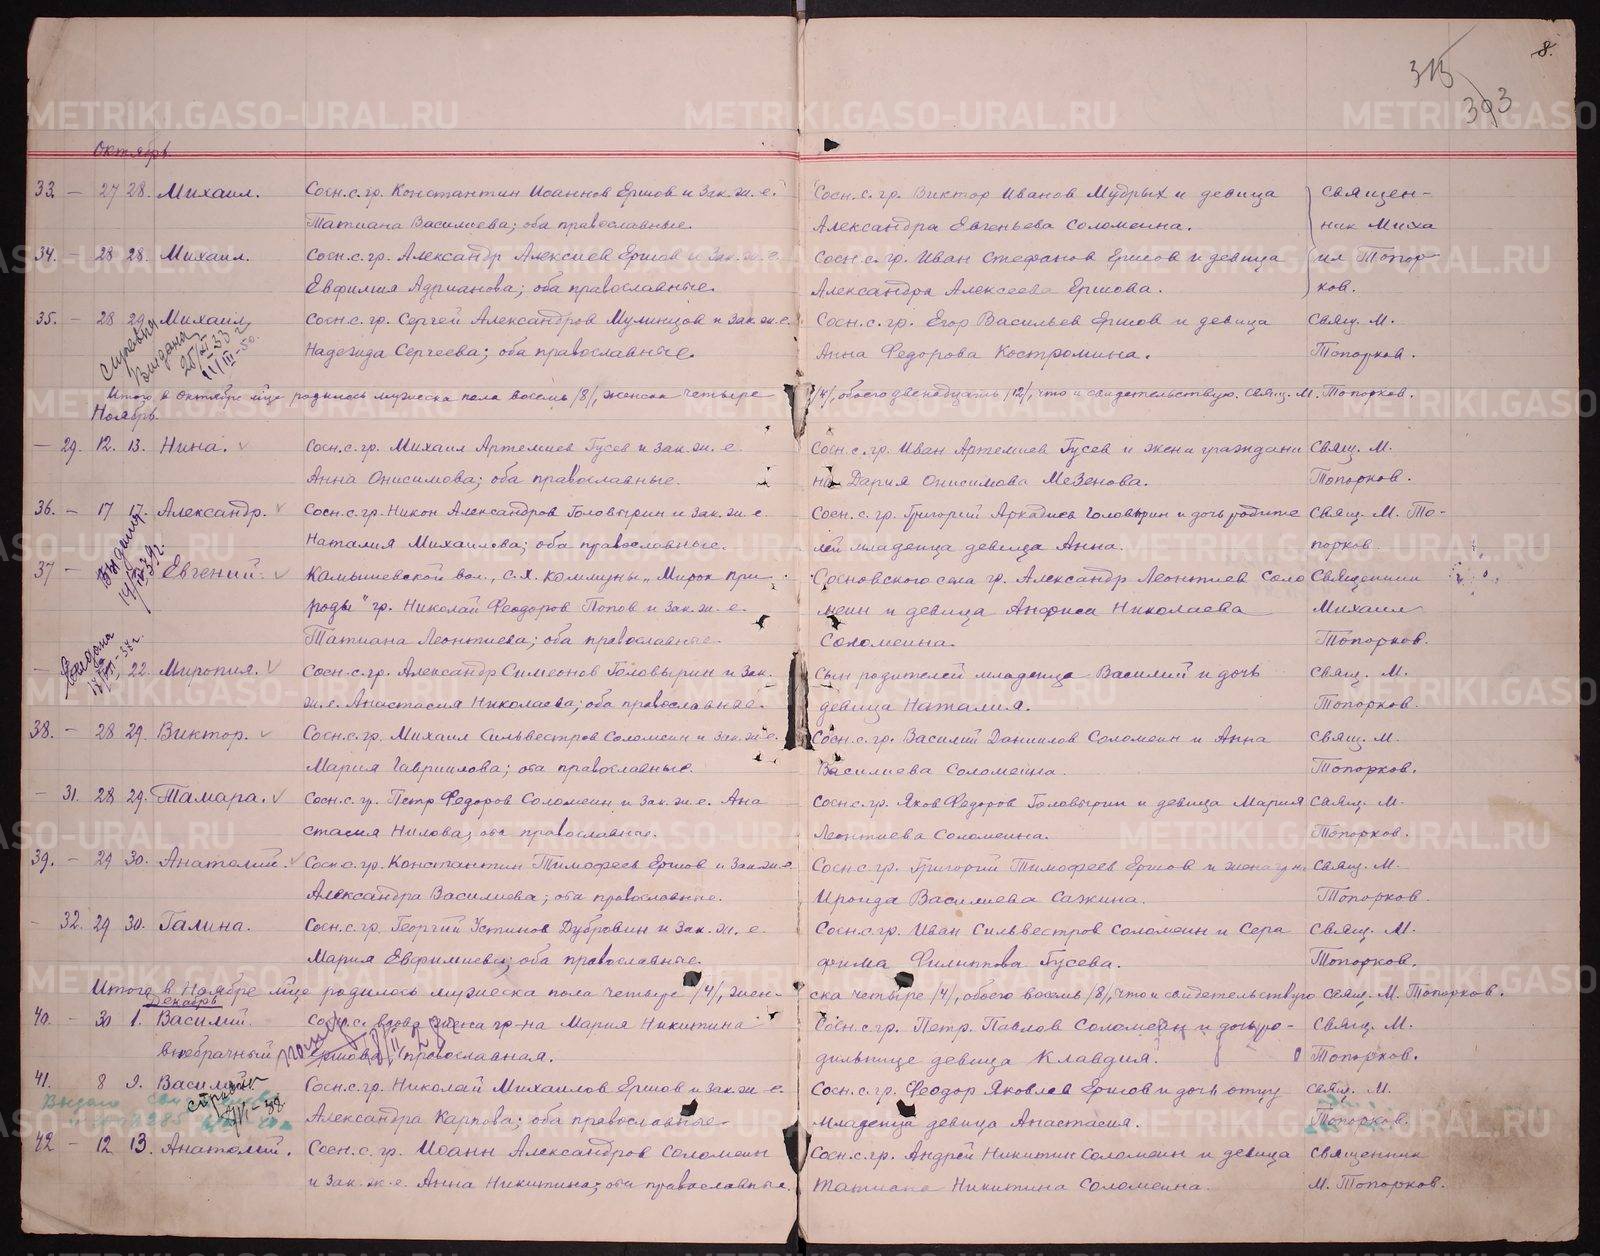 8.
315
393
Октябрь.
33. — 27 28. Михаил. Сосн. с. гр. Константин Иоаннов Ершов и зак. ж. е. Сосн. с. гр. Виктор Иванов Мудрых и девица Священ-
Татиана Василиева; оба православные. Александра Евгеньева Соломеина. ник Миха
34. — 28 28. Михаил. Сосн. с. гр. Александр Алексиев Ершов и зак. ж. е. Сосн. с. гр. Иван Стефанов Ершов и девица ил Топор
Евфимия Адрианова; оба православные. Александра Алексеева Ершова. ков.
35. — 28 29. Михаил. Сосн. с. гр. Сергей Александров Мулинцов и зак. ж. е. Сосн. с. гр. Егор Васильев Ершов и девица Свящ. М.
Надежида Сергеева; оба православные. Анна Федорова Костромина. Топорков.
Справка
Выдана
Итого в Октябре м-це родилось мужеска пола восемь /8/, женска четыре /4/, обоего двенадцать /12/, что и свидетельствую. Свящ. М. Топорков.
Ноябрь.
— 29. 12. 13. Нина. Сосн. с. гр. Михаил Артемиев Гусев и зак. ж. е. Сосн. с. гр. Иван Артемиев Гусев и жена граждани Свящ. М.
Анна Онисимова; оба православные. на Дария Онисимова Мезенова. Топорков.
36. — 17 17. Александр. Сосн. с. гр. Никон Александров Головырин и зак. ж. е. Сосн. с. гр. Григорий Аркадиев Головырин и дочь родите Свящ. М. То-
Наталия Михаилова; оба православные. лей младенца девица Анна. порков.
37 — Евгений. Камышевской вол., с. х. коммуны „Мирок при Сосновского села гр. Александр Леонтиев Соло Священник
роды" гр. Николай Феодоров Попов и зак. ж. е. меин и девица Анфиса Николаева Михаил
Татиана Леонтиева; оба православные. Соломеина. Топорков.
Выдана
— 22. Миропия. Сосн. с. гр. Александр Симеонов Головырин и зак. Сын родителей младенца Василий и дочь Свящ. М.
ж. е. Анастасия Николаева; оба православные. девица Наталия. Топорков.
38. — 28 29. Виктор. Сосн. с. гр. Михаил Сильвестров Соломеин и зак. ж. е. Сосн. с. гр. Василий Даниилов Соломеин и Анна Свящ. М.
Мария Гавриилова; оба православные. Василиева Соломеина. Топорков.
— 31. 28 29. Тамара. Сосн. с. гр. Петр Федоров Соломеин и зак. ж. е. Ана Сосн. с. гр. Яков Федоров Головырин и девица Мария Свящ. М.
стасия Нилова; оба православные. Леонтиева Соломеина. Топорков.
39. — 29 30. Анатолий. Сосн. с. гр. Константин Тимофеев Ершов и зак. ж. е. Сосн. с. гр. Григорий Тимофеев Ершов и жена гр-на Свящ. М.
Александра Василиева; оба православные. Ироида Василиева Сажина. Топорков.
— 32. 29 30. Галина. Сосн. с. гр. Георгий Устинов Дубровин и зак. ж. е. Сосн. с. гр. Иван Сильвестров Соломеин и Сера Свящ. М.
Мария Евфимиева; оба православные. фима Филиппова Гусева. Топорков.
Итого в Ноябре м-це родилось мужеска пола четыре /4/, жен- ска четыре /4/, обоего восемь /8/, что и свидетельствую Свящ. М. Топорков.
Декабрь
40. — 30 1. Василий Сосн. с. вдова жена гр-на Мария Никитина Сосн. с. гр. Петр Павлов Соломеин и дочь ро- Свящ. М.
внебрачный Ершова православная. дильнице девица Клавдия. Топорков.
41. 8 9. Василий Сосн. с. гр. Николай Михаилов Ершов и зак. ж. е. Сосн. с. гр. Феодор Яковлев Ершов и дочь отцу Свящ. М.
Александра Карпова; оба православные. младенца девица Анастасия. Топорков.
42 — 12 13. Анатолий. Сосн. с. гр. Иоанн Александров Соломеин Сосн. с. гр. Андрей Никитин Соломеин и девица Священник
и зак. ж. е. Анна Никитина; оба православные. Татиана Никитина Соломеина. М. Топорков.
METRIKI.GASO-URAL.RU